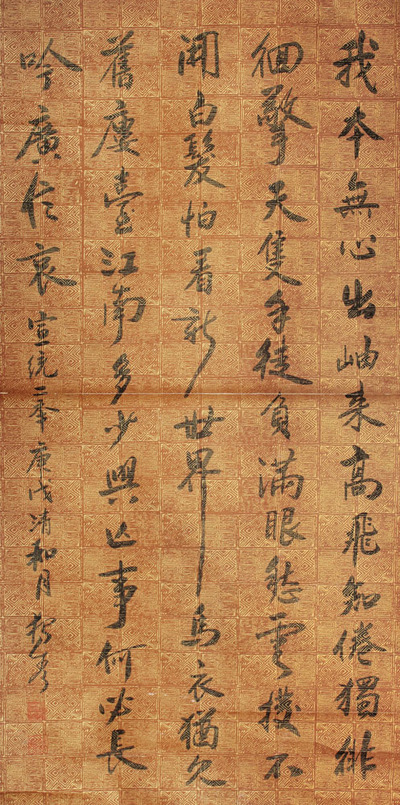 我本無心出岫来高飛知倦獨徘
徊擎天隻手徒負滿眼愁雲撥不
開白髮怕看新世界烏衣猶見
舊廔臺江南多少興亡事何必長
吟庾信哀宣統二年庚戌清和月